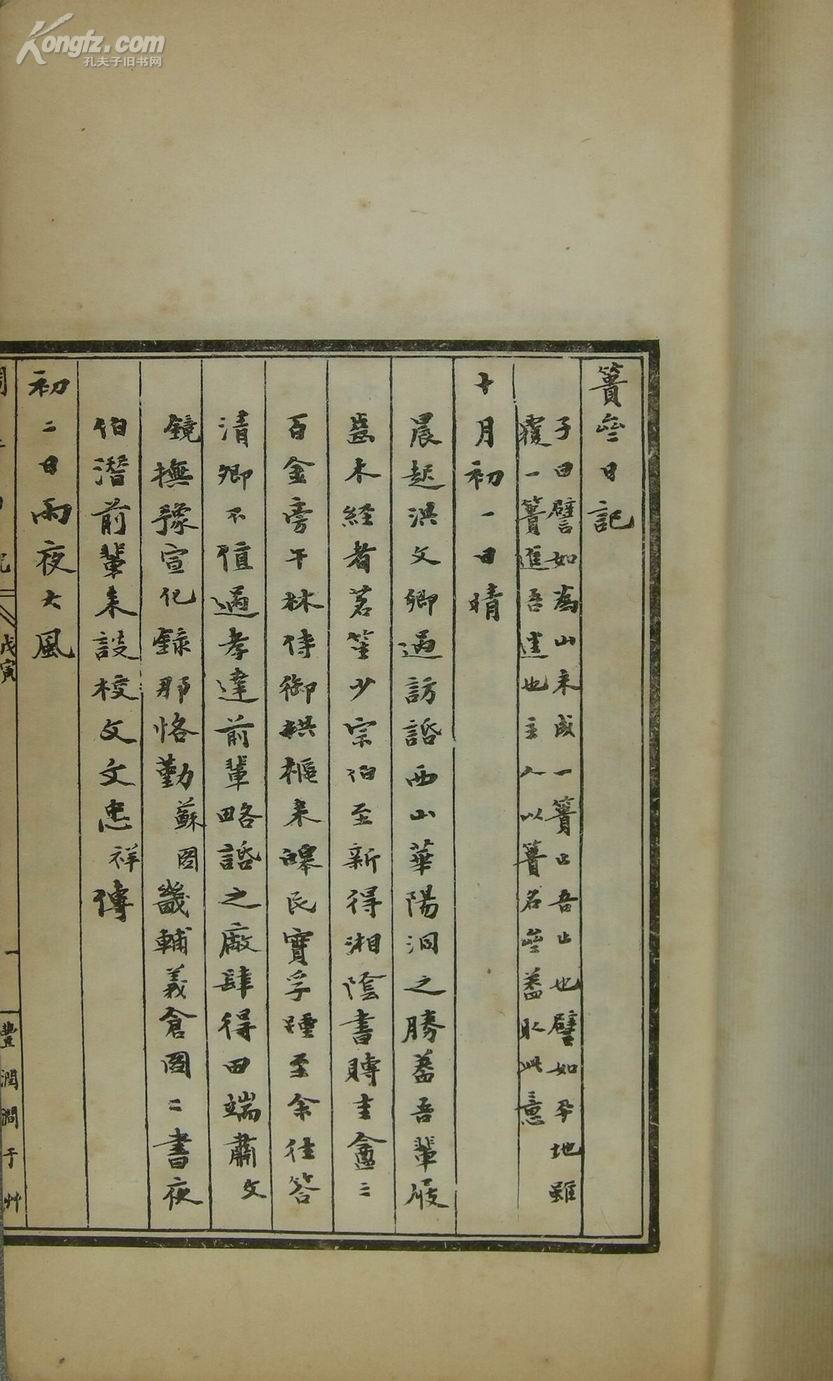 Kongfz.com
孔夫子旧书网
簣齋日記
子曰譬如為山未成一簣止吾止也譬如平地雖
覆一簣進吾往也主人以簣名齋蓋取此意
十月初一日晴
晨起洪文卿過訪話西山華陽洞之勝蓋吾輩屐
齒未經者茗笙少宗伯至新得湘陰書賻圭盦三
百金旁午林侍御拱樞來皞民寶孚踵至余往答
清卿不值過孝達前輩略話之廠肆得田端肅文
鏡撫豫宣化錄那恪勤蘇圖畿輔義倉圖二書夜
伯潛前輩來談校文文忠祥傳
初二日雨夜大風
戊寅
一
豐潤澗于艸